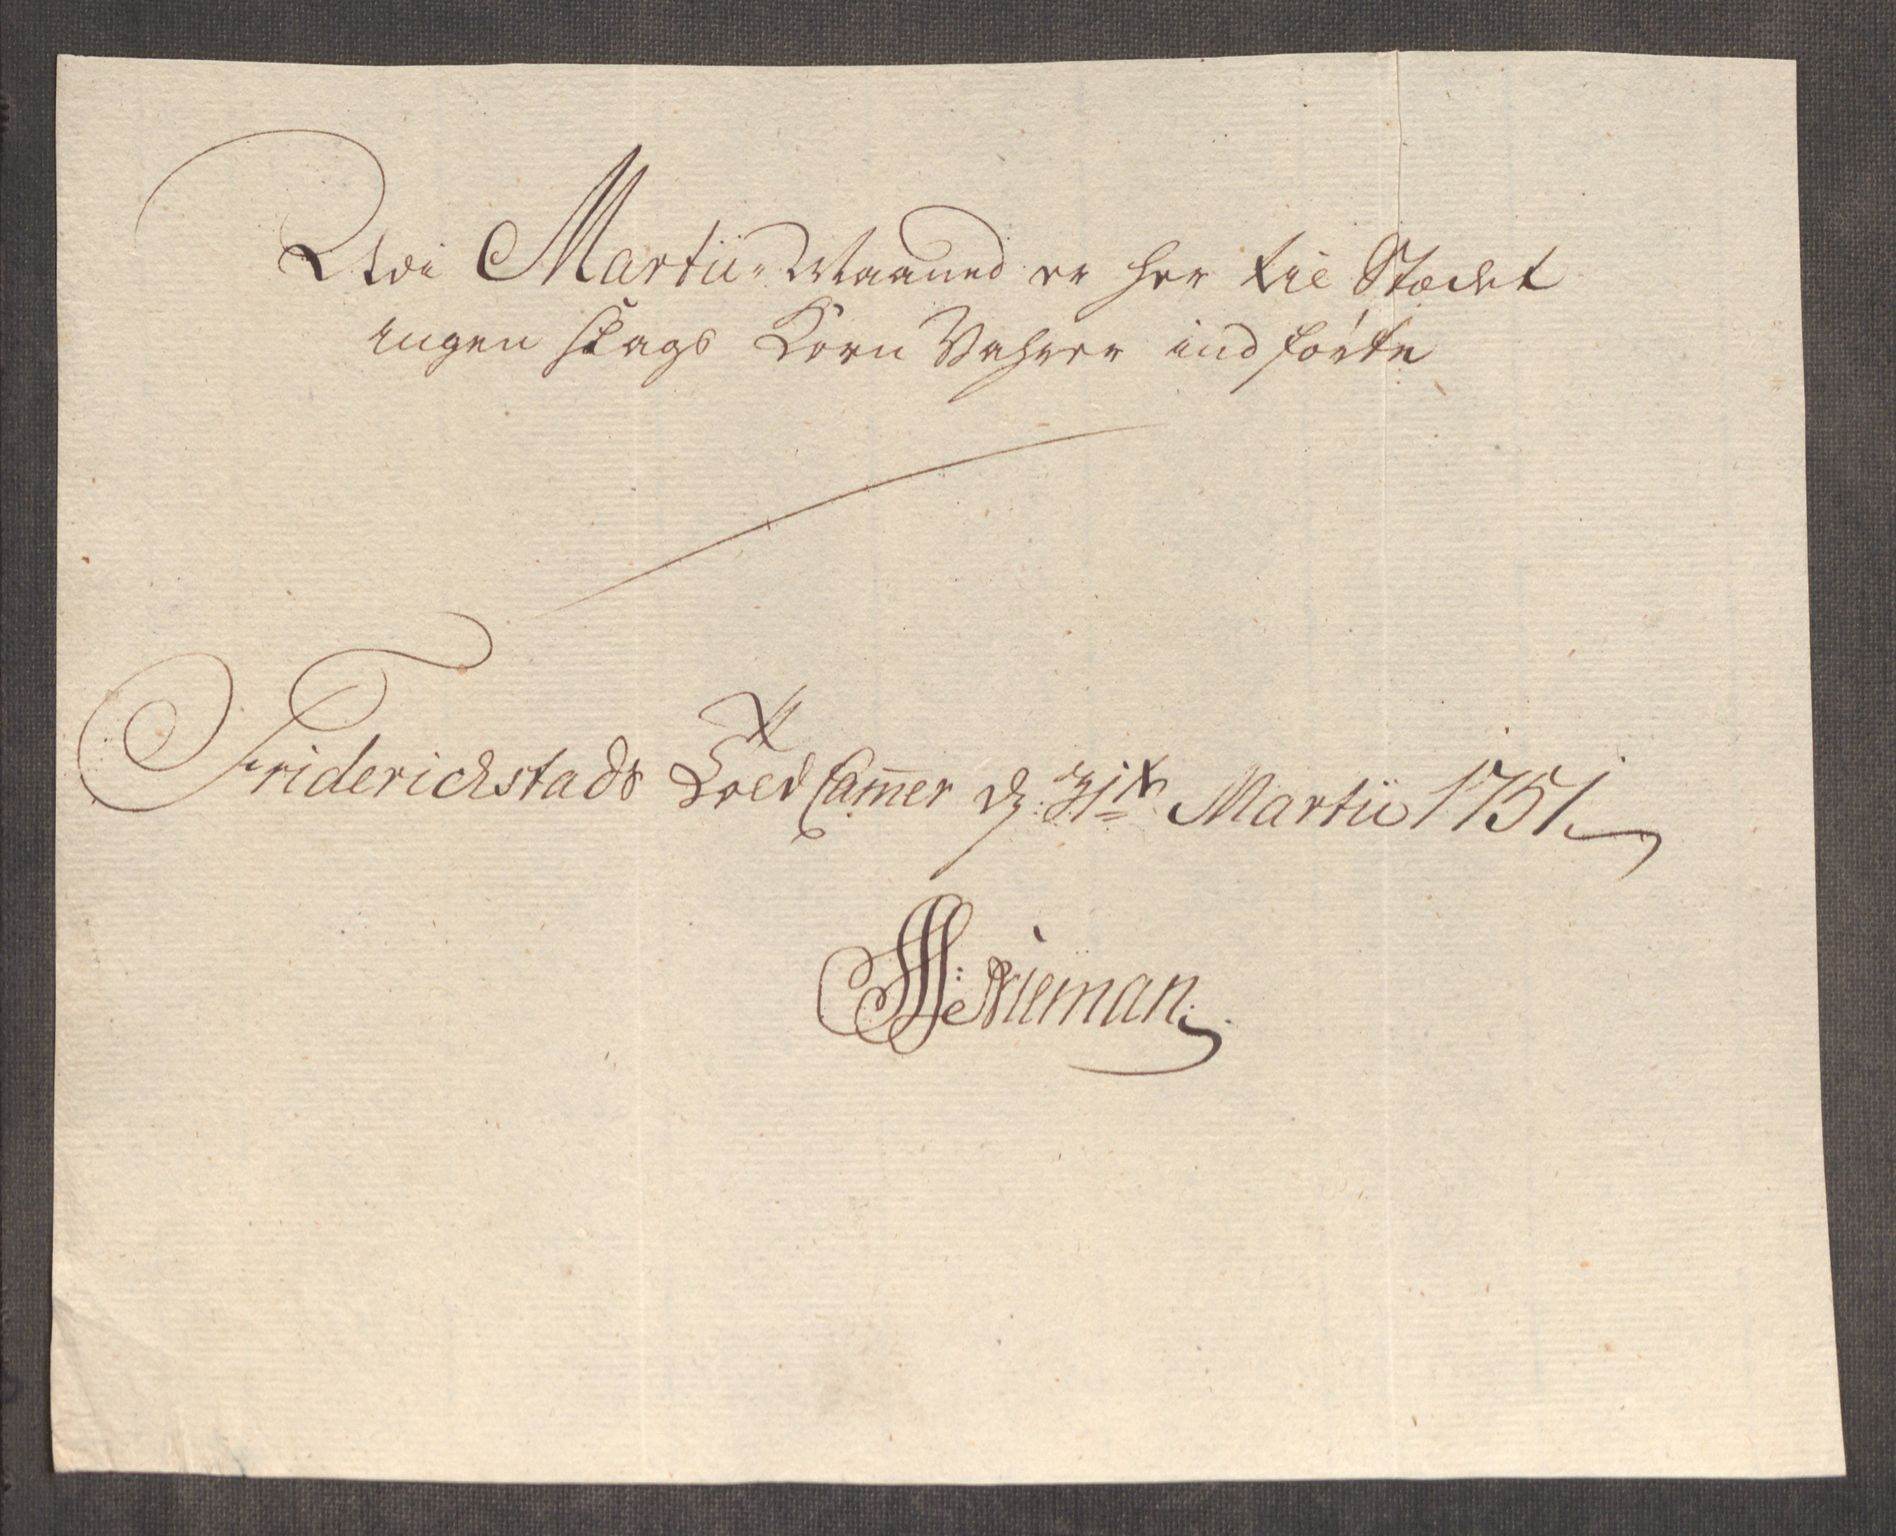 Udi Martii Maaned er her til Stædet
ingen slags Korn Vahrer indførte
Friderichstads Told Cam̅er d: 31te Martii 1751
Nieman